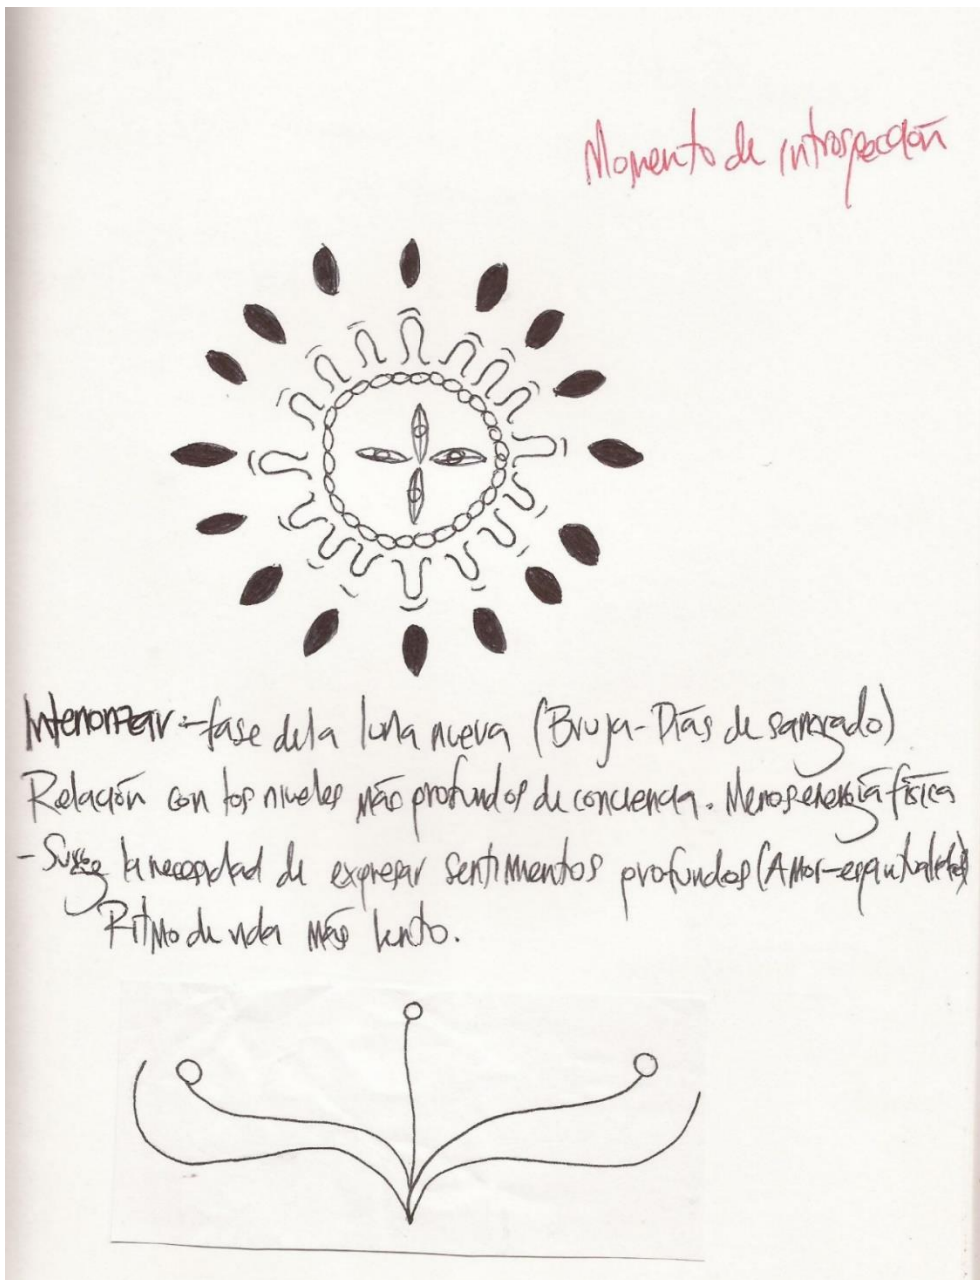 Momento de introspección
Interiorizar :- fase de la luna nueva (Bruja-Días de sangrado)
Relación con los niveles más profundos de conciencia. Menos energía física
- Surge la necesidad de expresar sentimientos profundos (Amor-espiritualidad)
Ritmo de vida más lento.